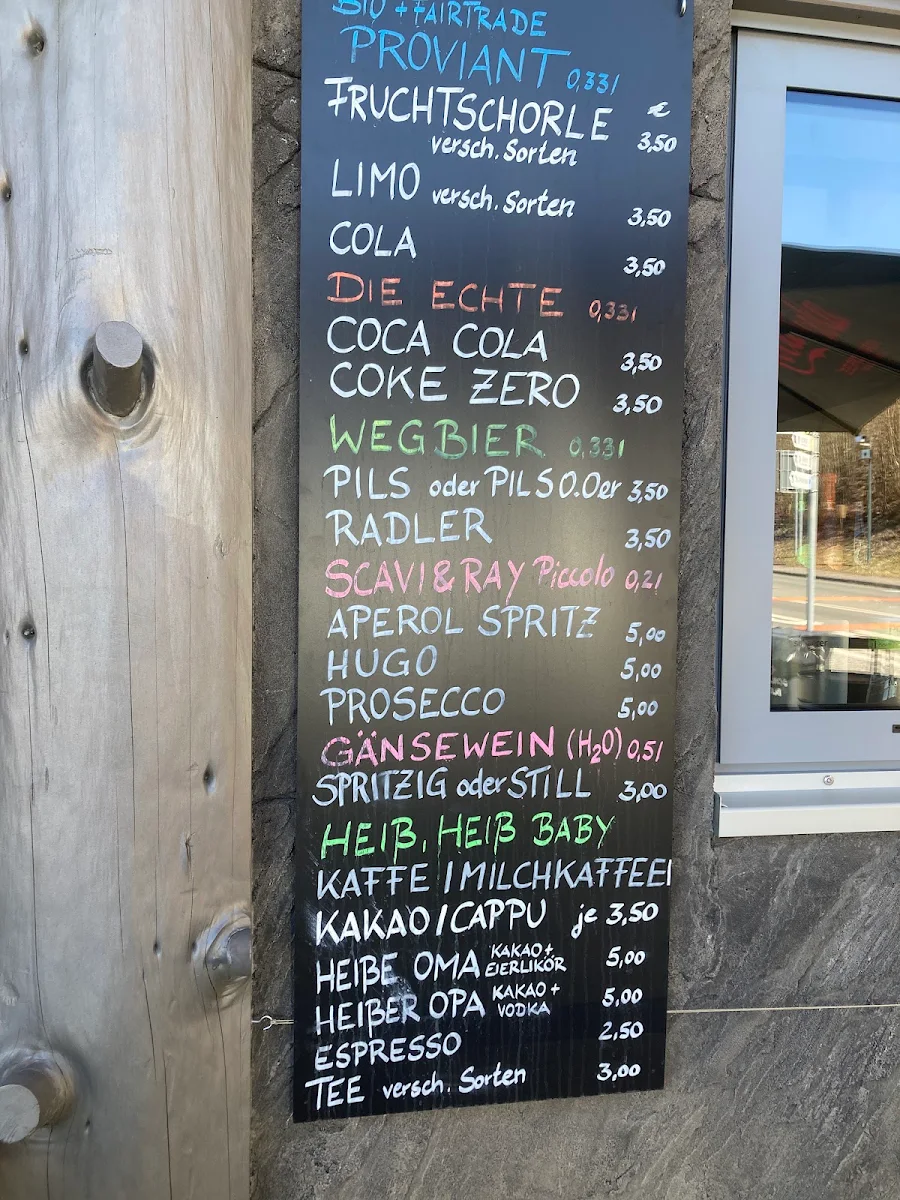 BIO + FAIRTRADE
PROVIANT 0,33l
FRUCHTSCHORLE €
versch. Sorten 3,50
LIMO versch. Sorten 3,50
COLA 3,50
DIE ECHTE 0,33l
COCA COLA 3,50
COKE ZERO 3,50
WEGBIER 0,33l
PILS oder PILS 0.0er 3,50
RADLER 3,50
SCAVI & RAY Piccolo 0,2l
APEROL SPRITZ 5,00
HUGO 5,00
PROSECCO 5,00
GÄNSEWEIN (H₂O) 0,5l
SPRITZIG oder STILL 3,00
HEIß, HEIß BABY
KAFFE / MILCHKAFFEE/
KAKAO / CAPPU je 3,50
HEIßE OMA KAKAO + EIERLIKÖR 5,00
HEIßER OPA KAKAO + VODKA 5,00
ESPRESSO 2,50
TEE versch. Sorten 3,00